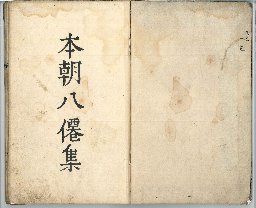 本朝八僊集